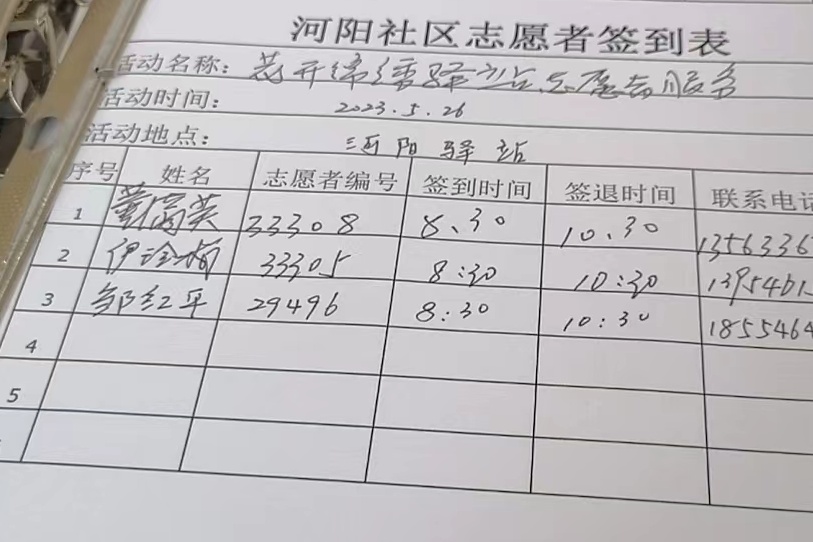 河阳社区志愿者签到表
活动名称：花开绵绣驿站志愿者服务
活动时间：2023.5.26
活动地点：河阳驿站
序号 姓名 志愿者编号 签到时间 签退时间 联系电话
1 英 33308 8.30 10.30 1356336
2 伊 33305 8:30 10:30 1395461
3 邹红平 29496 8:30 10:30 1855464
4
5